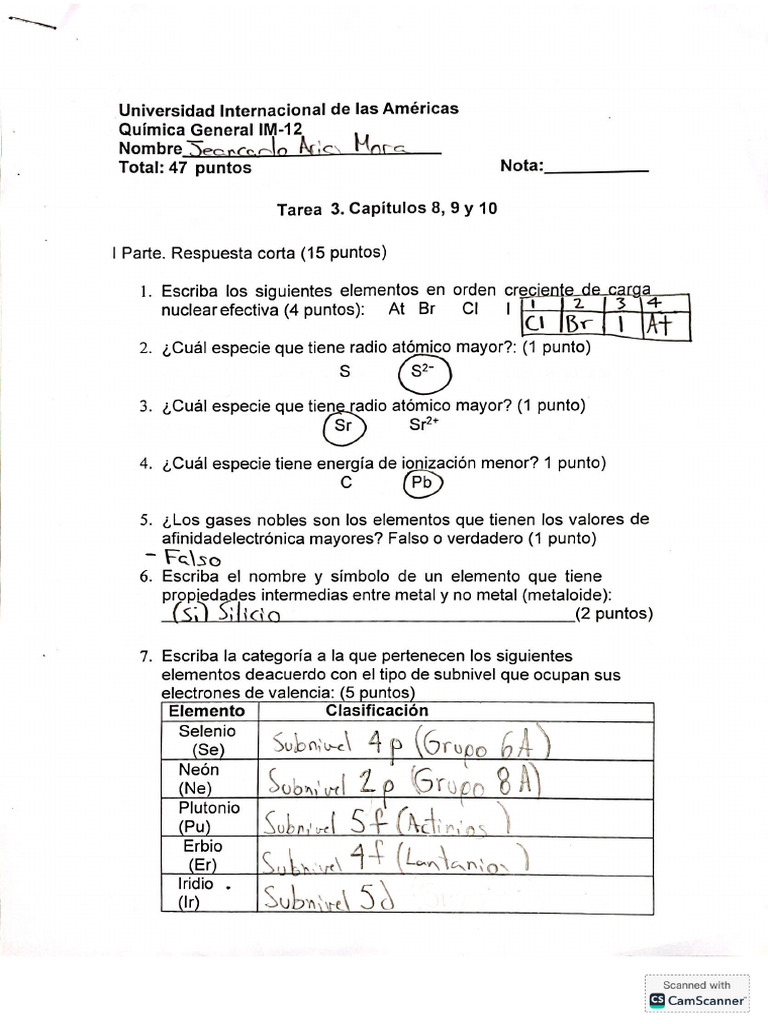 Universidad Internacional de las Américas
Química General IM-12
Nombre Jeancarlo Aria Mora
Total: 47 puntos Nota:
Tarea 3. Capítulos 8, 9 y 10
I Parte. Respuesta corta (15 puntos)
1. Escriba los siguientes elementos en orden creciente de carga
nuclear efectiva (4 puntos): At Br Cl I
1 2 3 4
Cl Br I At
2. ¿Cuál especie que tiene radio atómico mayor?: (1 punto)
S S²⁻
3. ¿Cuál especie que tiene radio atómico mayor? (1 punto)
Sr Sr²⁺
4. ¿Cuál especie tiene energía de ionización menor? 1 punto)
C Pb
5. ¿Los gases nobles son los elementos que tienen los valores de
afinidadelectrónica mayores? Falso o verdadero (1 punto)
- Falso
6. Escriba el nombre y símbolo de un elemento que tiene
propiedades intermedias entre metal y no metal (metaloide):
(Si) Silicio (2 puntos)
7. Escriba la categoría a la que pertenecen los siguientes
elementos deacuerdo con el tipo de subnivel que ocupan sus
electrones de valencia: (5 puntos)
Elemento Clasificación
Selenio
(Se) Subnivel 4p (Grupo 6A)
Neón
(Ne) Subnivel 2p (Grupo 8A)
Plutonio
(Pu) Subnivel 5f (Actinios)
Erbio
(Er) Subnivel 4f (Lantanios)
Iridio
(Ir) Subnivel 5d
Scanned with
CS CamScanner